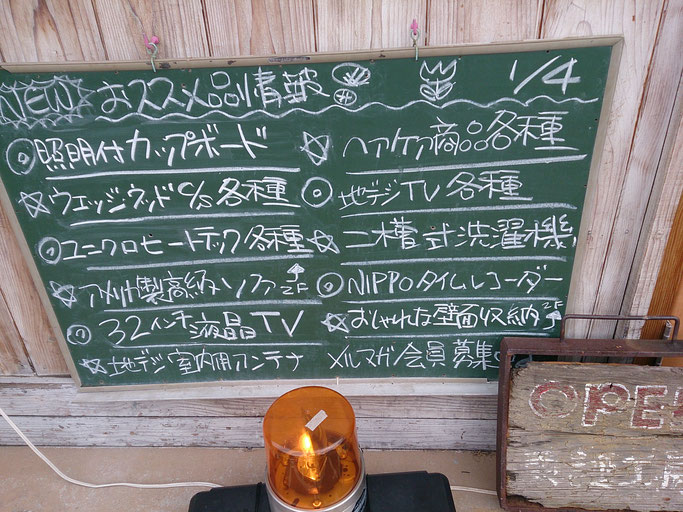 NEW おススメ品情報 1/4
◎照明付カップボード
☆ウェッジウッドc/s各種
◎ユニクロヒートテック各種
☆アメリカ製高級ソファー2F
◎32インチ液晶TV
☆地デジ室内用アンテナ
☆ヘアケア商品各種
◎地デジTV各種
☆二槽式洗濯機
◎NIPPOタイムレコーダー
☆おしゃれな壁面収納2F
メルマガ会員募集
OPE